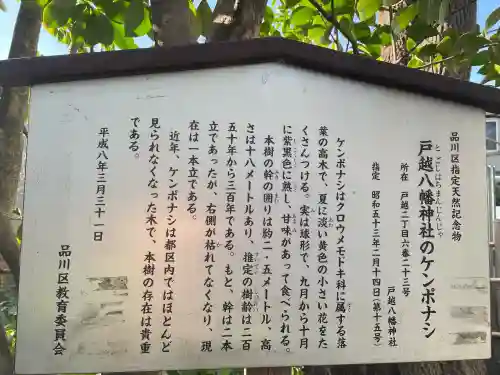 品川区指定天然記念物
とごしはちまんじんじゃ
戸越八幡神社のケンポナシ
所在 戸越二丁目六番二十三号
戸越八幡神社
指定 昭和五十三年二月十四日(第十五号)
ケンポナシはクロウメモドキ科に属する落
葉の高木で、夏に淡い黄色の小さい花をた
くさんつける。実は球形で、九月から十月
に紫黒色に熟し、甘味があって食べられる。
本樹の幹の囲りは約二・五メートル、高
さは十八メートルあり、推定の樹齢は二百
五十年から三百年である。もと、幹は二本
立であったが、右側が枯れてなくなり、現
在は一本立である。
近年、ケンポナシは都区内ではほとんど
見られなくなった木で、本樹の存在は貴重
である。
平成八年三月三十一日
品川区教育委員会